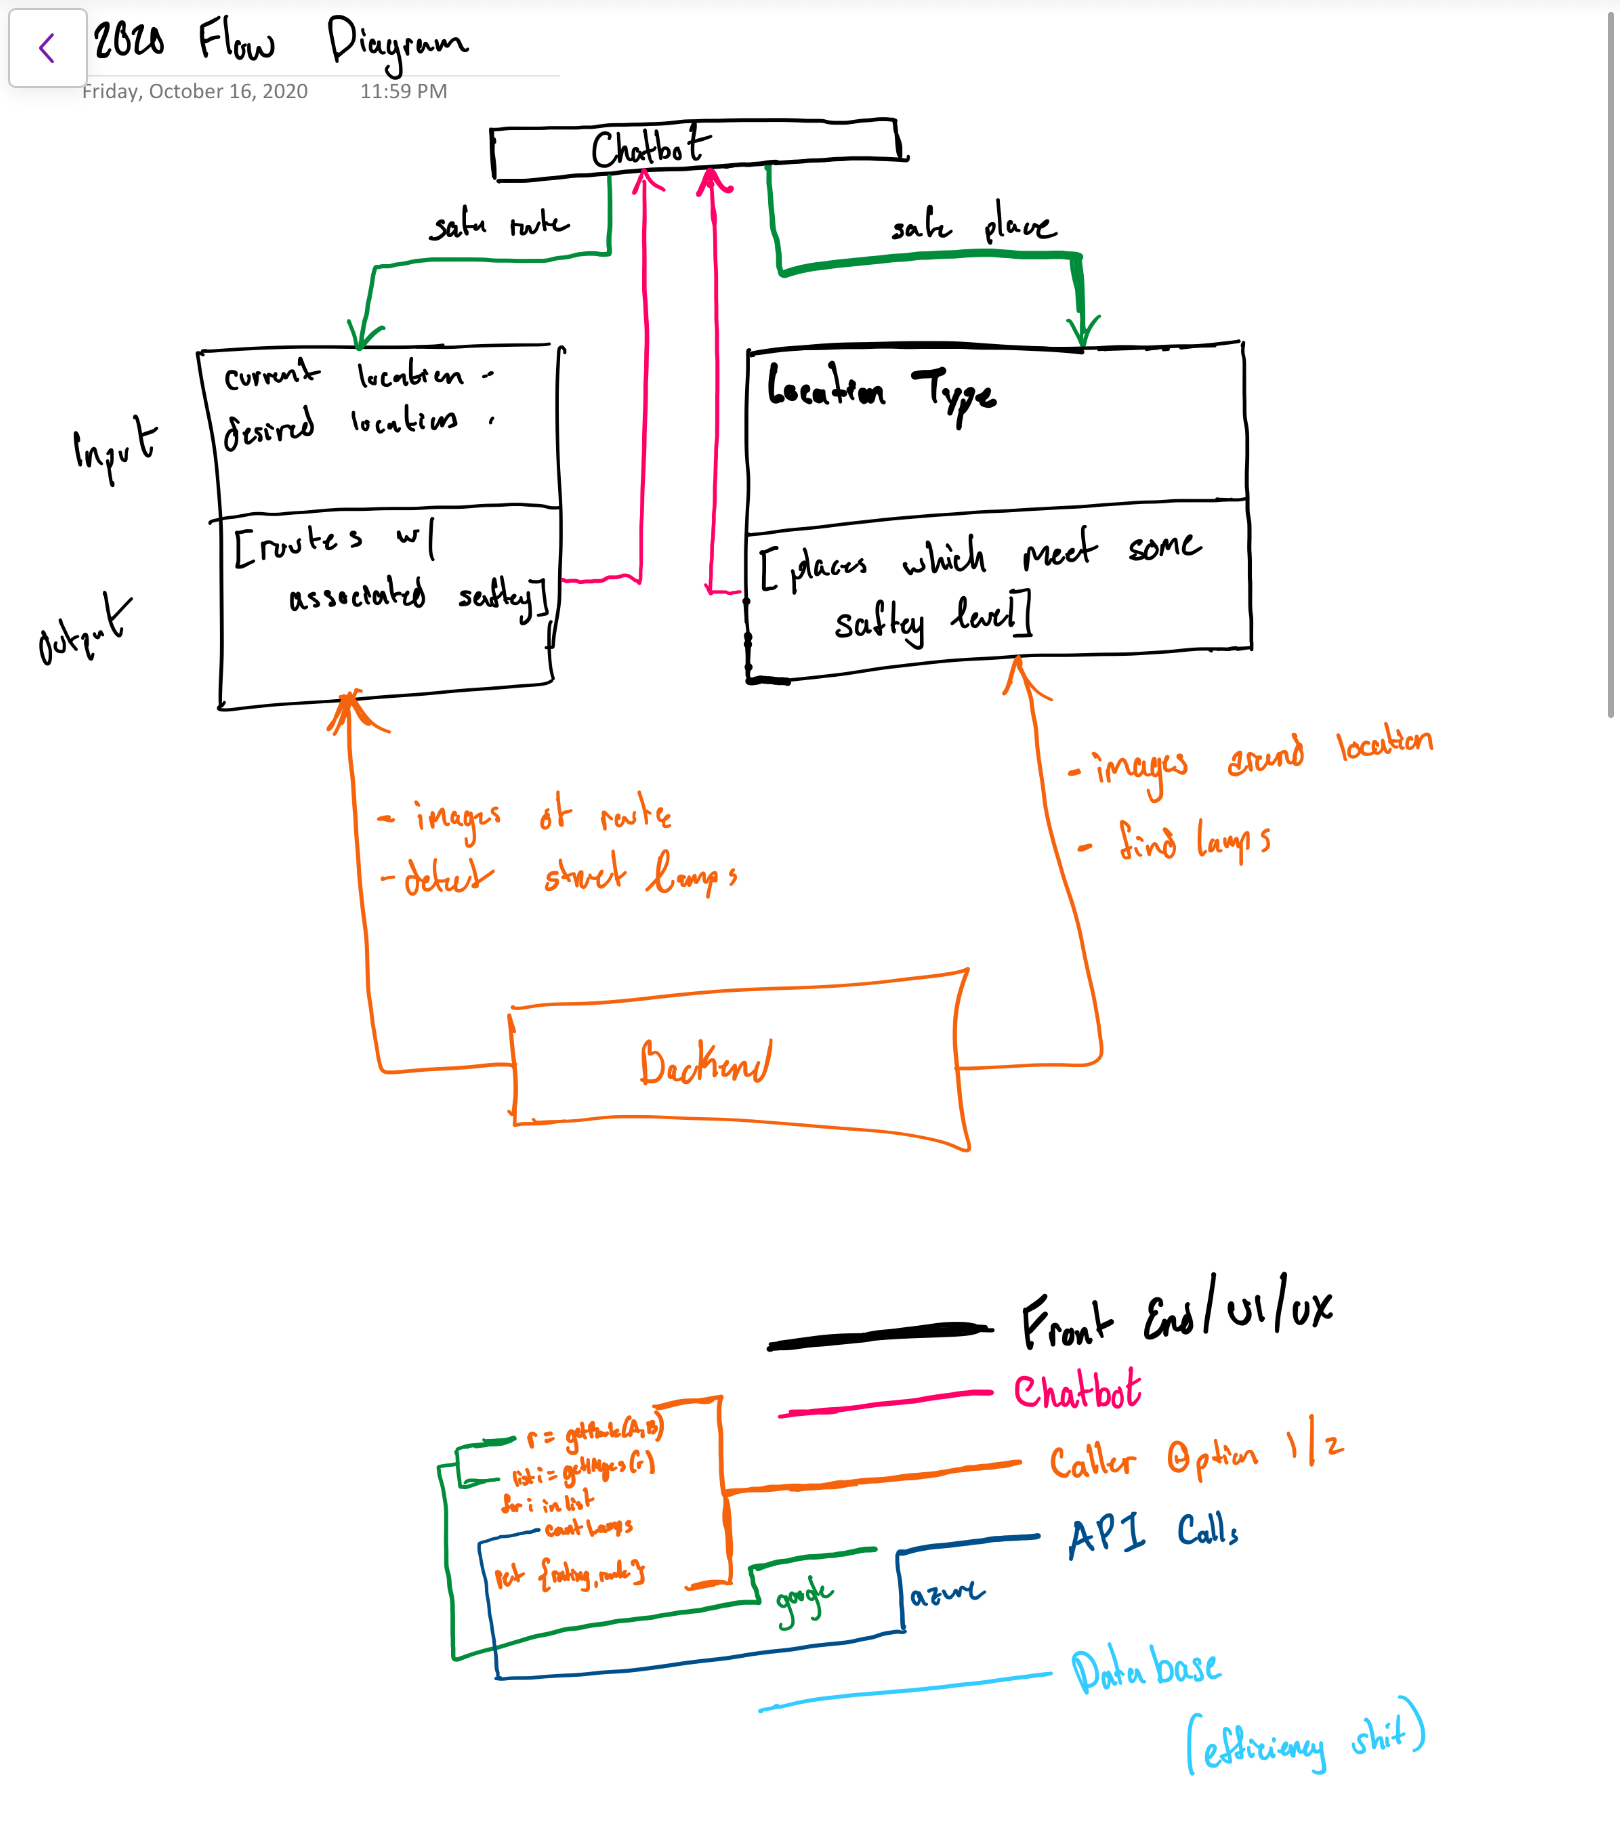 2020 Flow Diagram
Friday, October 16, 2020 11:59 PM
Chatbot
safe route
safe place
Input
current location -
desired location .
Location Type
output
[routes w/
associated saftey]
[places which meet some
saftey level]
- images of route
- detect street lamps
- images around location
- find lamps
Backend
Front End/UI/UX
Chatbot
Caller Option 1/2
API Calls
Database
(efficiency shit)
r = getRoute(A,B)
list i = getImages(r)
for i in list
count Lamps
ret {rating, route}
google
azure